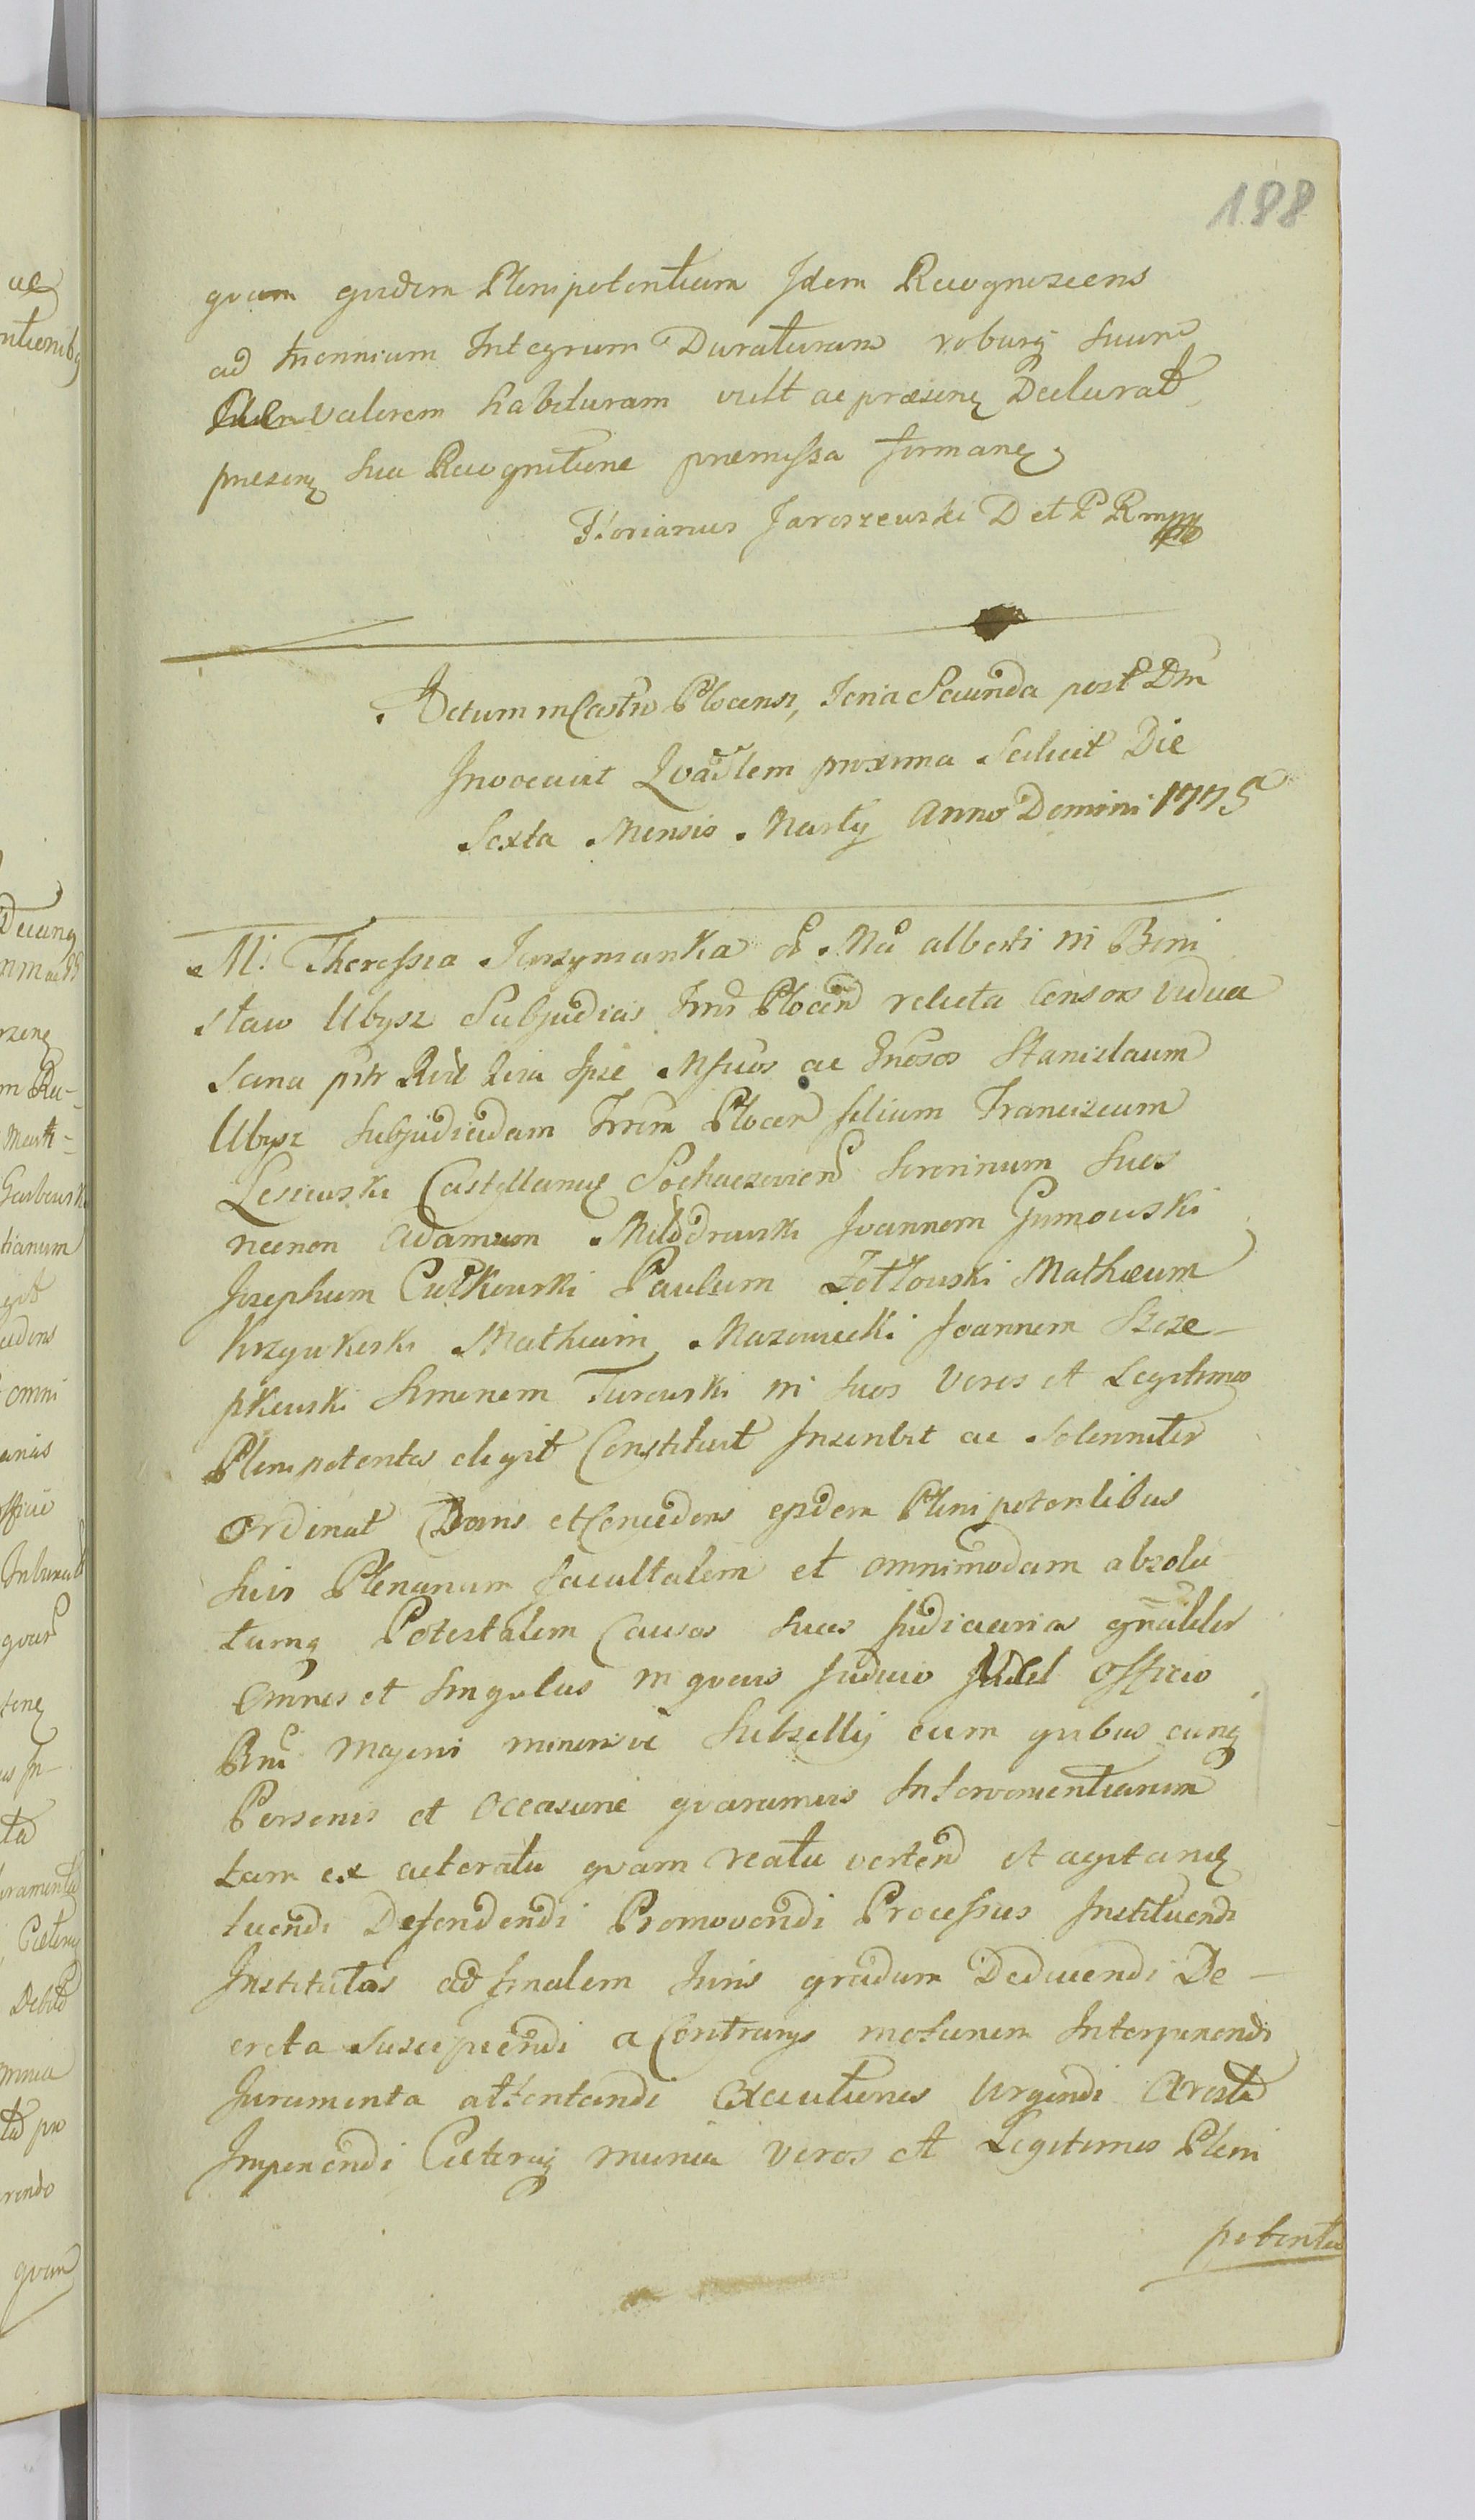 188
quam quidem Plenipotentiam Idem Recognoscens
ad triennium Integrum Duraturam roburq suum
valorem habituram vult ac præsenq Declarat
presenq sua Recognitione præmissa firmanq
Florianus Jaroszewski D et P R mpp
Actum in Castro Plocensi, Feria Secunda post Dm
Invocavit Qvadlem proxima Scilicet Die
Sexta Mensis Martij Anno Domini 1775
M. Theressia Jarzymanka Mci alberti in Beni
staw Ubysz Subjudicis Trris Plocen relicta Consors vidua
Sana pntr Ipse Mficos ac Gnosos Stanislaum
Ubysz Subjudicidam Trrem Plocen filium Franciscum
Lesiewski Castellanus Sochaczovien Sororinum Suos
necnon Adamum Milodrowski Joannem Gumowski
Josephum Cutkowski Paulum Zottowski Mathæum
Krzywkoski Matheum Mazowiecki Joannem Szcze-
pkowski Simonem Turowski in suos Veros et Legitimos
Plenipotentes elegit Constituit Inscribit ac Solenniter
Ordinat Dans et Concedens eisdem Plenipotentibus
suis Plenariam facultatem et omnimodam absolu
tamq Potestatem Causas suas Judiciarias gnaliter
Omnes et Singulas in qvovis Judicio Officio
Rni Majoris minorisve Subsellij cum qvibus cunq
Personis et Occasione qvarumvis Intervenientiarum
tam ex acteratu qvam reatu verten et agitanq
tuendi Defendendi Promovendi Processus Instituendi
Institutas ad finalem Juris gradum Deducendi De-
creta Suscipiendi a Contrarys motionem Interponendi
Juramenta attentandi Executiones Urgendi Aresta
Imponendi Cæteraq munia Veros et Legitimos Pleni
potentes